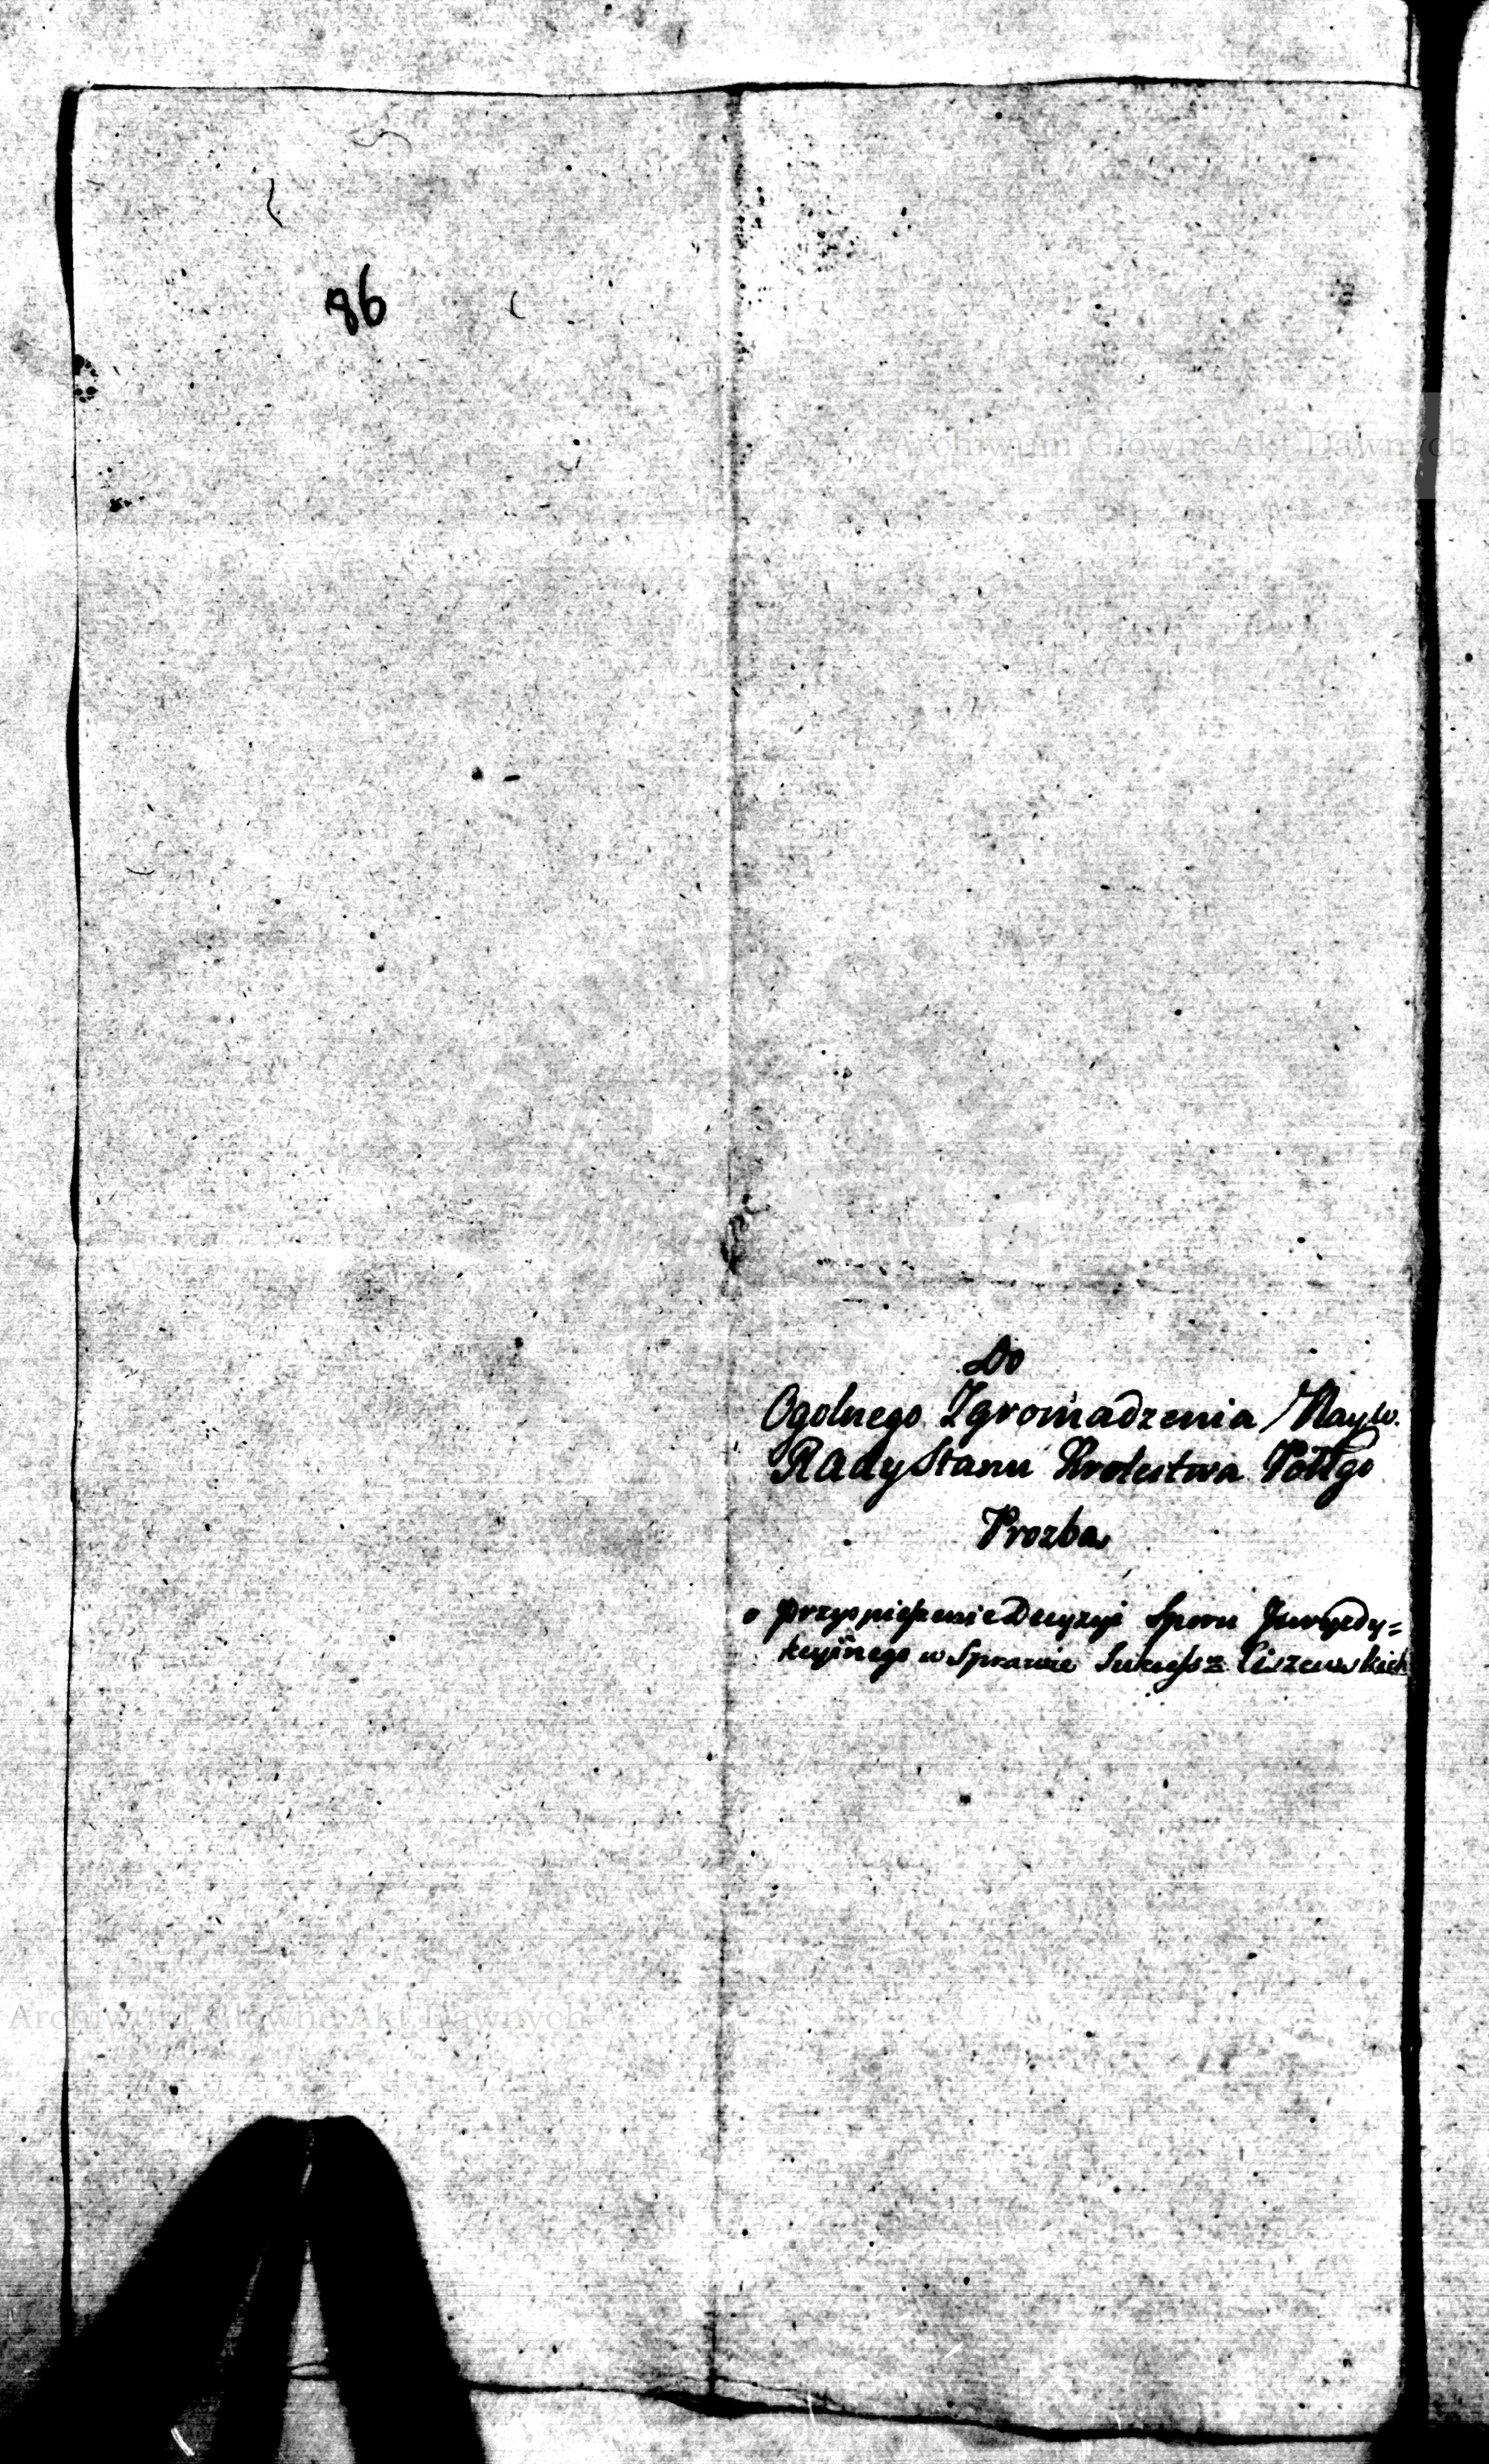 86
Archiwum Główne Akt Dawnych
Do
Ogolnego Zgromadzenia Nayw.
Rady Stanu Krolestwa Pollgo
Prozba
o przyspieszenie Decyzyi Sporu Jurysdy=
kcyinego w Sprawie Sukcess: Ciszewskich
Archiwum Główne Akt Dawnych